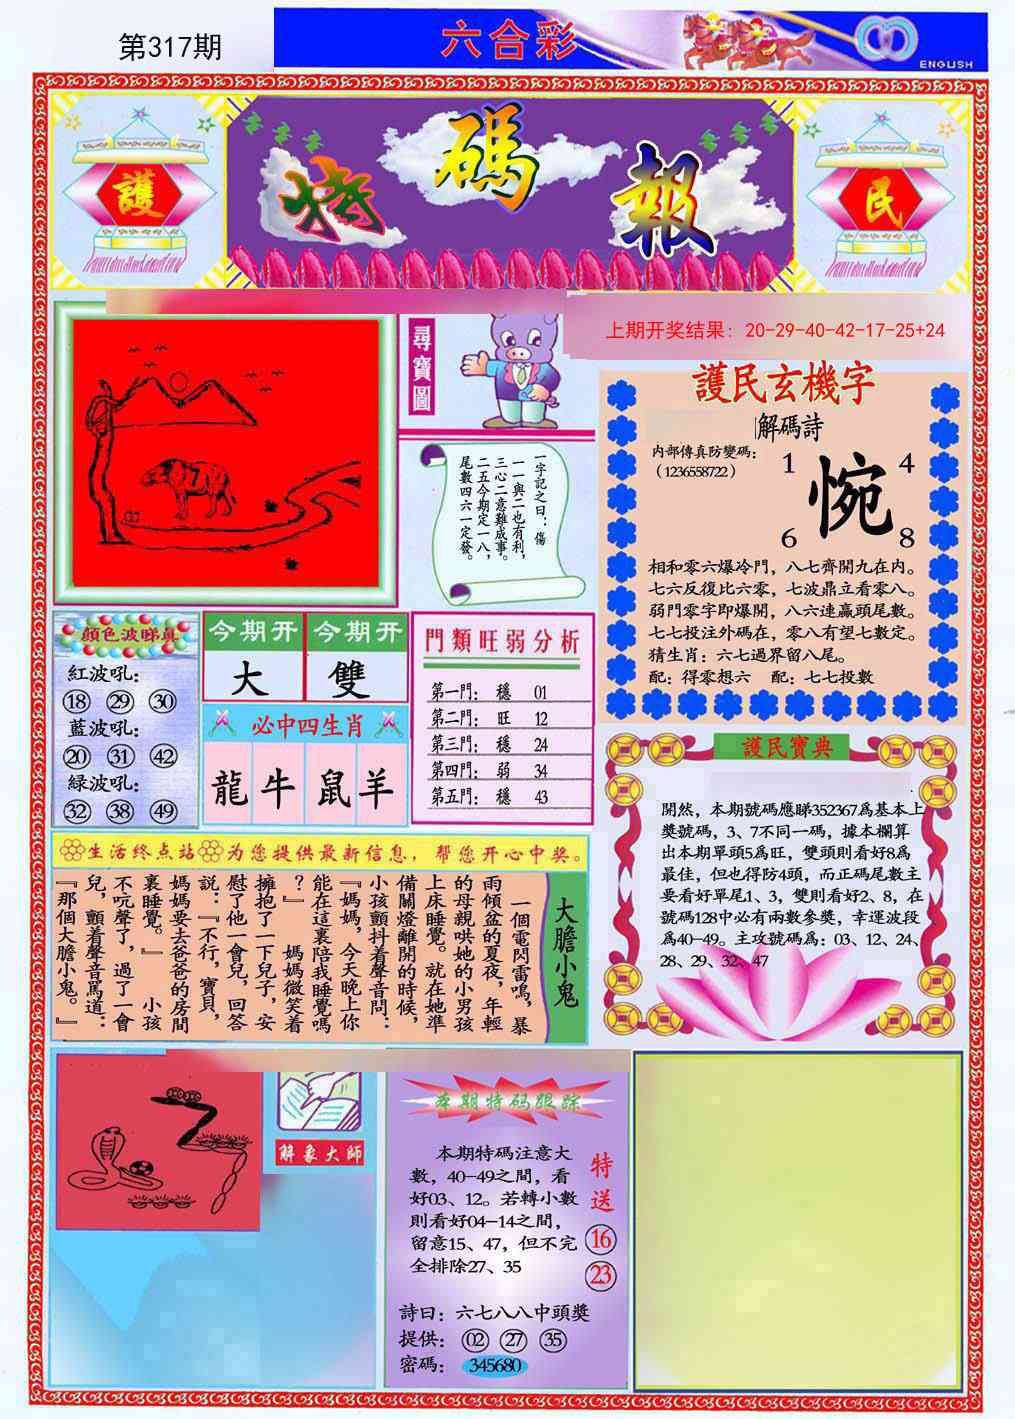 第317期
六合彩
ENGLISH
特碼報
護
民
上期开奖结果：20-29-40-42-17-25+24
尋寶圖
一字記之曰：傷
一一與二也有利，
三心二意難成事。
二五今期定一八，
尾數四六一定發。
護民玄機字
解碼詩
內部傳真防變碼：
（1236558722）
1
4
惋
6
8
相和零六爆冷門，八七齊開九在內。
七六反復比六零，七波鼎立看零八。
弱門零字即爆開，八六連贏頭尾數。
七七投注外碼在，零八有望七數定。
猜生肖：六七過界留八尾。
配：得零想六　配：七七投數
顏色波睇真
紅波吼：
18 29 30
藍波吼：
20 31 42
綠波吼：
32 38 49
今期開 今期開
大 雙
必中四生肖
龍 牛 鼠 羊
門類旺弱分析
第一門： 穩 01
第二門： 旺 12
第三門： 穩 24
第四門： 弱 34
第五門： 穩 43
護民寶典
開然，本期號碼應睇352367爲基本上
獎號碼，3、7不同一碼，據本欄算
出本期單頭5爲旺，雙頭則看好8爲
最佳，但也得防4頭，而正碼尾數主
要看好單尾1、3，雙則看好2、8，在
號碼128中必有兩數參獎，幸運波段
爲40-49。主攻號碼爲：03、12、24、
28、29、32、47
生活终点站 为您提供最新信息，帮您开心中奖。
大膽小鬼
一個電閃雷鳴，暴
雨傾盆的夏夜，年輕
的母親哄她的小男孩
上床睡覺。就在她準
備關燈離開的時候，
小孩顫抖着聲音問：
『媽媽，今天晚上你
能在這裏陪我睡覺嗎
？』　媽媽微笑着
擁抱了一下兒子，安
慰了他一會兒，回答
説：『不行，寶貝，
媽媽要去爸爸的房間
裏睡覺。』　小孩
不吭聲了，過了一會
兒，顫着聲音罵道：
『那個大膽小鬼。』
解象大師
本期特码跟踪
本期特碼注意大
數，40-49之間，看
好03、12。若轉小數
則看好04-14之間，
留意15、47，但不完
全排除27、35
特送
16
23
詩曰：六七八八中頭獎
提供：02 27 35
密碼：345680